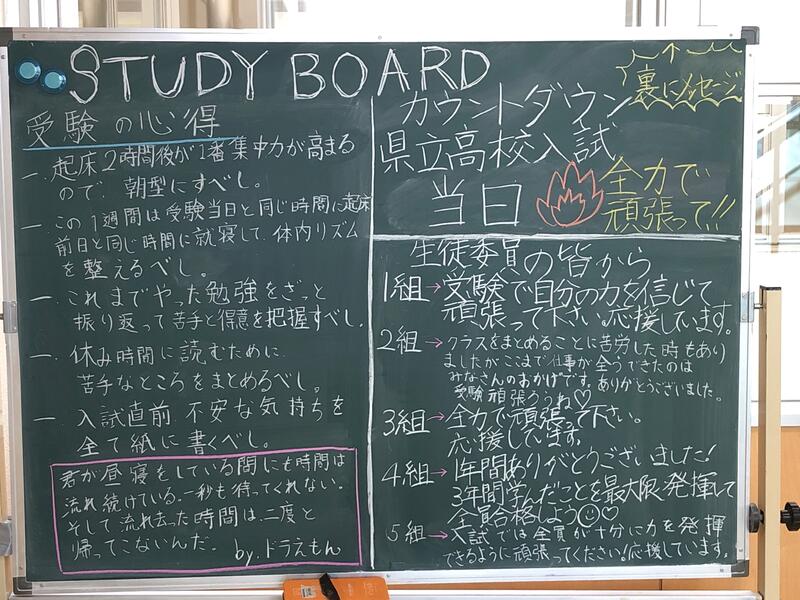 STUDY BOARD
受験の心得
一.起床2時間後が1番集中力が高まる
ので、朝型にすべし。
一.この1週間は受験当日と同じ時間に起床
前日と同じ時間に就寝して、体内リズム
を整えるべし。
一.これまでやった勉強をざっと
振り返って苦手と得意を把握すべし。
一.休み時間に読むために
苦手なところをまとめるべし。
一.入試直前、不安な気持ちを
全て紙に書くべし。
君が昼寝をしている間にも時間は
流れ続けている。一秒も待ってくれない。
そして流れ去った時間は、二度と
帰ってこないんだ。 by.ドラえもん
カウントダウン
県立高校入試
当日
全力で
頑張って!!
↑
裏にメッセージ
生徒委員の皆から
1組→受験で自分の力を信じて
頑張って下さい。応援しています。
2組→クラスをまとめることに苦労した時もあり
ましたがここまで仕事が全うできたのは
みなさんのおかげです。ありがとうございました。
受験頑張ろうね♡
3組→全力で頑張って下さい。
応援してます。
4組→1年間ありがとうございました!
3年間学んだことを最大限発揮して
全員合格しよう☺♡
5組→入試では全員が十分に力を発揮
できるように頑張ってください!応援しています。